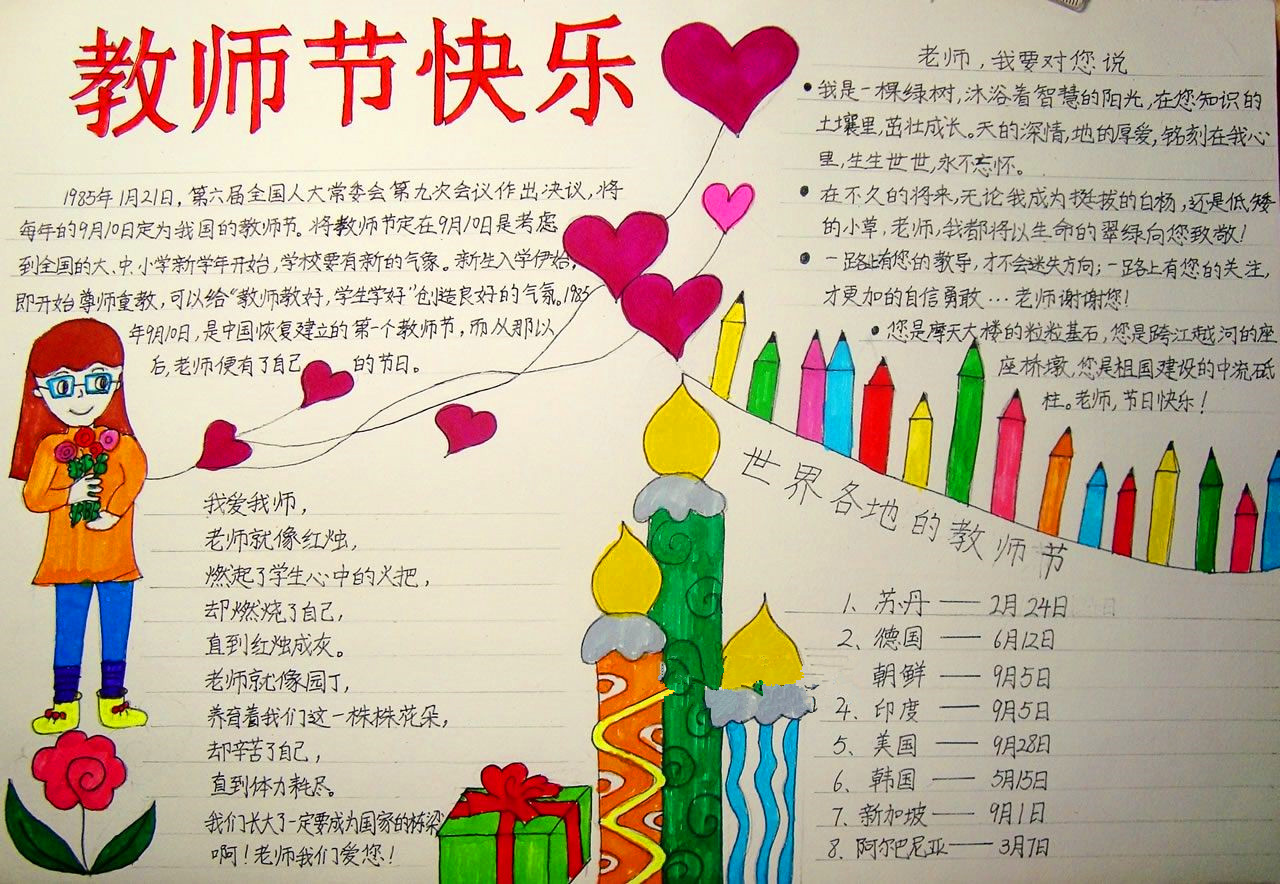 教师节快乐
1985年1月21日，第六届全国人大常委会第九次会议作出决议，将
每年的9月10日定为我国的教师节。将教师节定在9月10日是考虑
到全国的大、中、小学新学年开始，学校要有新的气象。新生入学伊始，
即开始尊师重教，可以给“教师教好，学生学好”创造良好的气氛。1985
年9月10日，是中国恢复建立的第一个教师节，而从那以
后，老师便有了自己 的节日。
我爱我师，
老师就像红烛，
燃起了学生心中的火把，
却燃烧了自己，
直到红烛成灰。
老师就像园丁，
养育着我们这一株株花朵，
却辛苦了自己，
直到体力耗尽。
我们长大了一定要成为国家的栋梁
啊！老师我们爱您！
老师，我要对您说
•我是一棵绿树，沐浴着智慧的阳光，在您知识的
土壤里，茁壮成长。天的深情，地的厚爱，铭刻在我心
里，生生世世，永不忘怀。
•在不久的将来，无论我成为挺拔的白杨，还是低矮
的小草，老师，我都将以生命的翠绿向您致敬！
•一路上有您的教导，才不会迷失方向；一路上有您的关注，
才更加的自信勇敢…老师谢谢您！
•您是摩天大楼的粒粒基石，您是跨江越河的座
座桥墩，您是祖国建设的中流砥
柱。老师，节日快乐！
世界各地的教师节
1、苏丹——2月24日
2、德国——6月12日
朝鲜——9月5日
4、印度——9月5日
5、美国——9月28日
6、韩国——5月15日
7、新加坡——9月1日
8、阿尔巴尼亚——3月7日